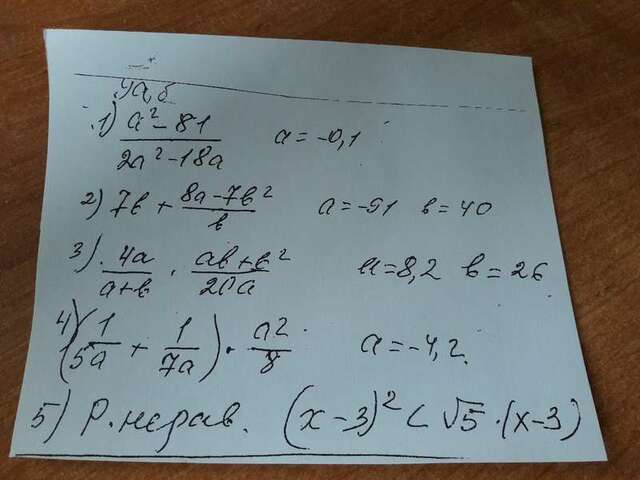 1) (a² - 81)/(2a² - 18a) a = -0,1
2) 7в + (8a - 7в²)/в a = -51 в = 40
3) 4a/(a+в) · (aв+в²)/20a a = 8,2 в = 26
4) (1/5a + 1/7a) · a²/8 a = -4,2
5) Р. нерав. (x - 3)² < √5 · (x - 3)